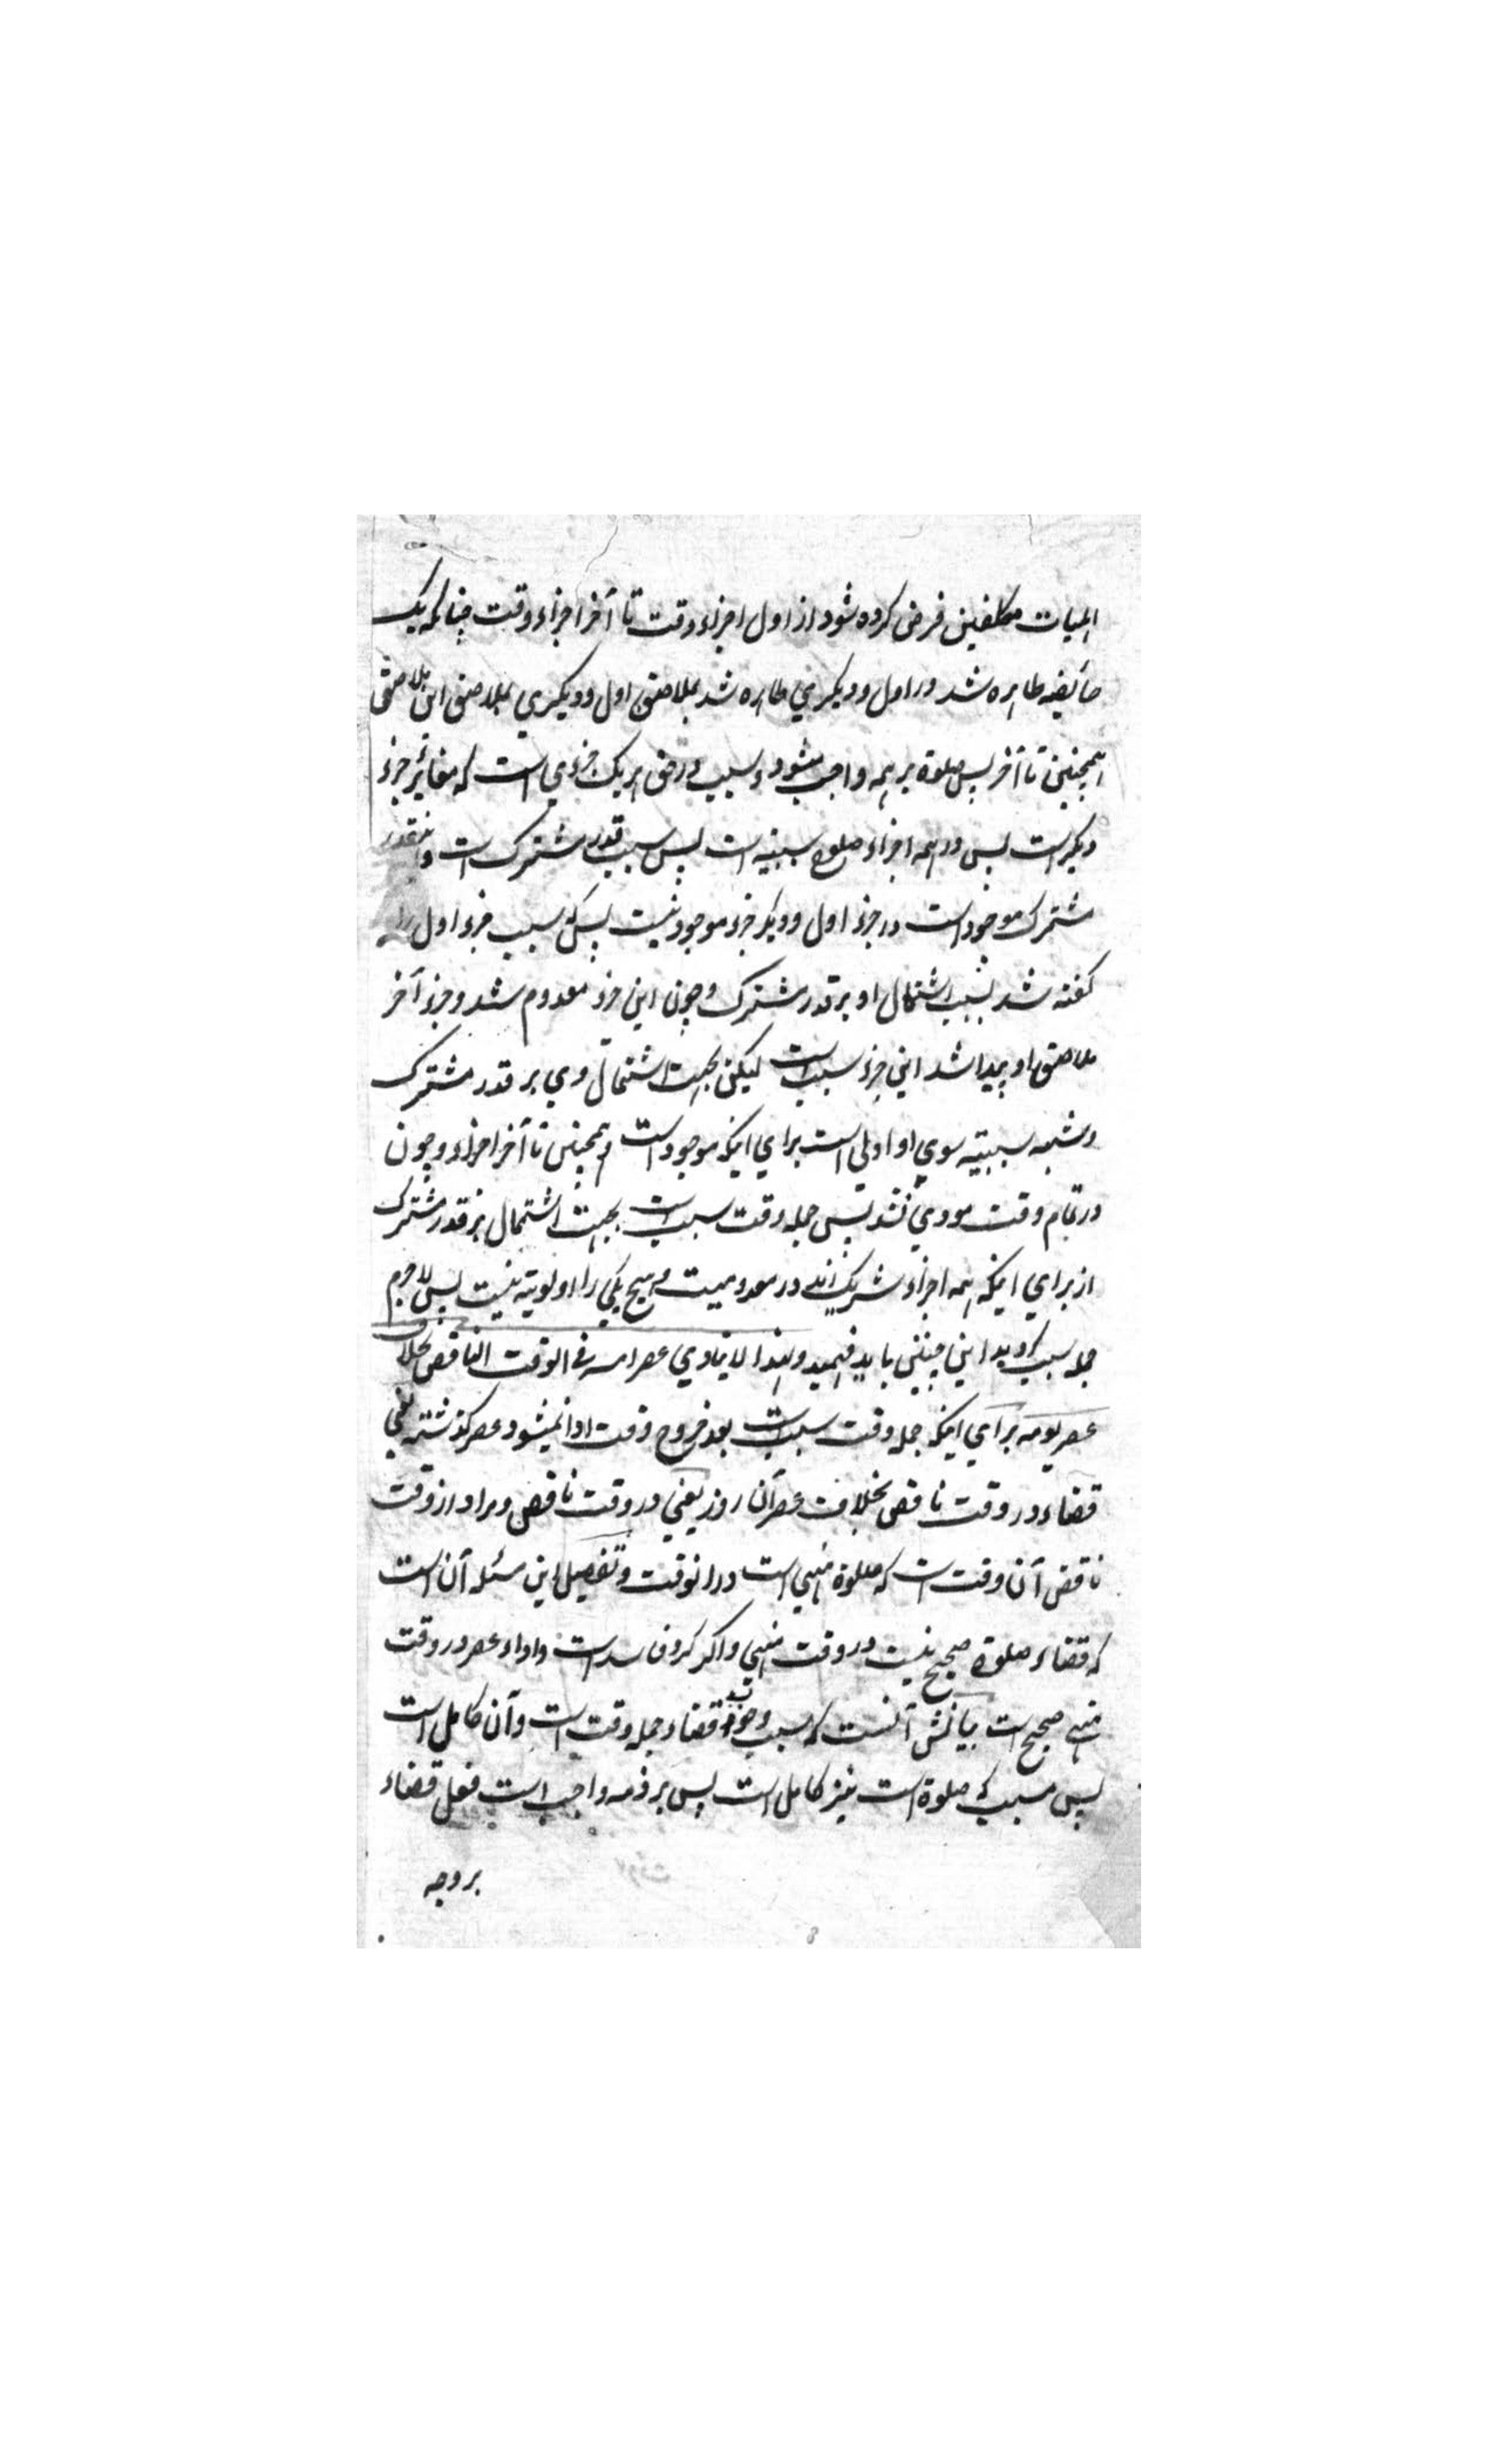 اهلیات مکلفین فرض کرده شود از اول اجزاء وقت تا آخر اجزاء وقت چنانکه یک
حائضه طاهره شد در اول و دیگری طاهره شد بملاصق اول و دیگری بملاصق این ملاصق
همچنین تا آخر پس صلوة بر همه واجب میشود و سبب در حق هر یک جزءی است که مغائر جزء
دیگر است پس در همه اجزاء صلوح سببیه است پس سبب قدر مشترک است و اینقدر
مشترک موجود است در جزء اول و دیگر جزء موجود نیست پس سبب جزء اول را
گفته شد بسبب اشتمال او بر قدر مشترک و چون این جزء معدوم شد و جزء آخر
ملاصق او پیدا شد این جزء سبب است لیکن بجهت اشتمال وی بر قدر مشترک
و سببیته سوی او اولی است برای اینکه موجود است و همچنین تا آخر اجزاء و چون
در تمام وقت مودی نشد پس جمله وقت سبب است بجهت اشتمال بر قدر مشترک
از برای اینکه همه اجزاء شریک اند در معدومیت و هیچ یکی را اولویته نیست پس لاجرم
جمله سبب گردید این چنین باید فهمید ولهذا لا یتادی عصر امسه فی الوقت الناقص بخلاف
عصر یومه برای اینکه جمله وقت سبب است بعد خروج وقت ادا نمیشود عصر گذشته یعنی
قضاء در وقت ناقص بخلاف عصر آن روز یعنی در وقت ناقص و مراد از وقت
ناقص آن وقت است که صلوة منهی است در انوقت و تفصیل این مسئله آن است
که قضاء صلوة صحیح نیست در وقت منهی و اگر کرد فاسد است و اداء عصر در وقت
منهی صحیح است بیانش آنست که سبب وجوب قضاء جمله وقت است و آن کامل است
پس مسبب که صلوة است نیز کامل است پس بر ذمه واجب است فعل قضاء
بر وجه